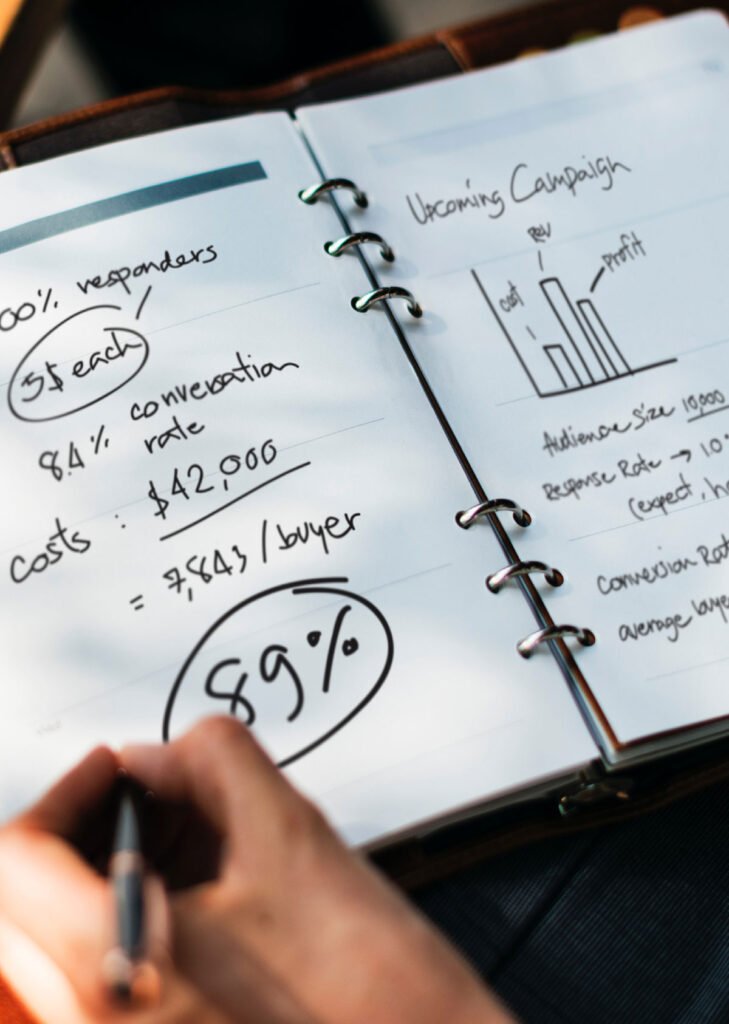 00% responders
5$ each
8.4% conversation
rate
costs : $42,000
= 7,843 / buyer
89%
Upcoming Campaign
cost
Rev
Profit
Audience Size 10,000
Response Rate → 1.0
(expect,
Conversion
average